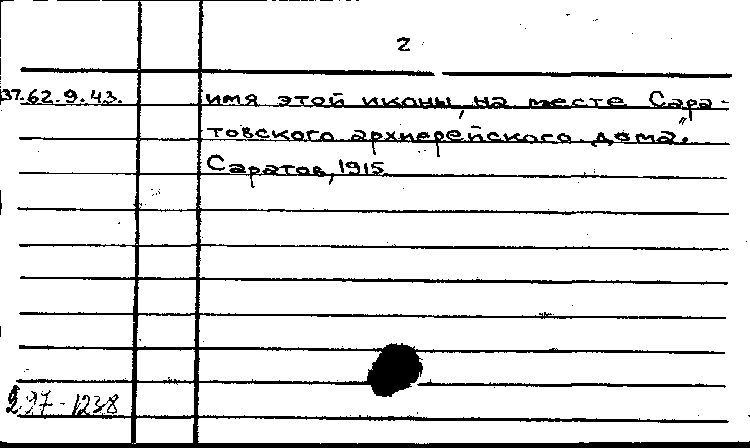 2
37.62.9.43. имя этой иконы, на месте Сара-
товского архиерейского дома".
Саратов, 1915
2.97-1238